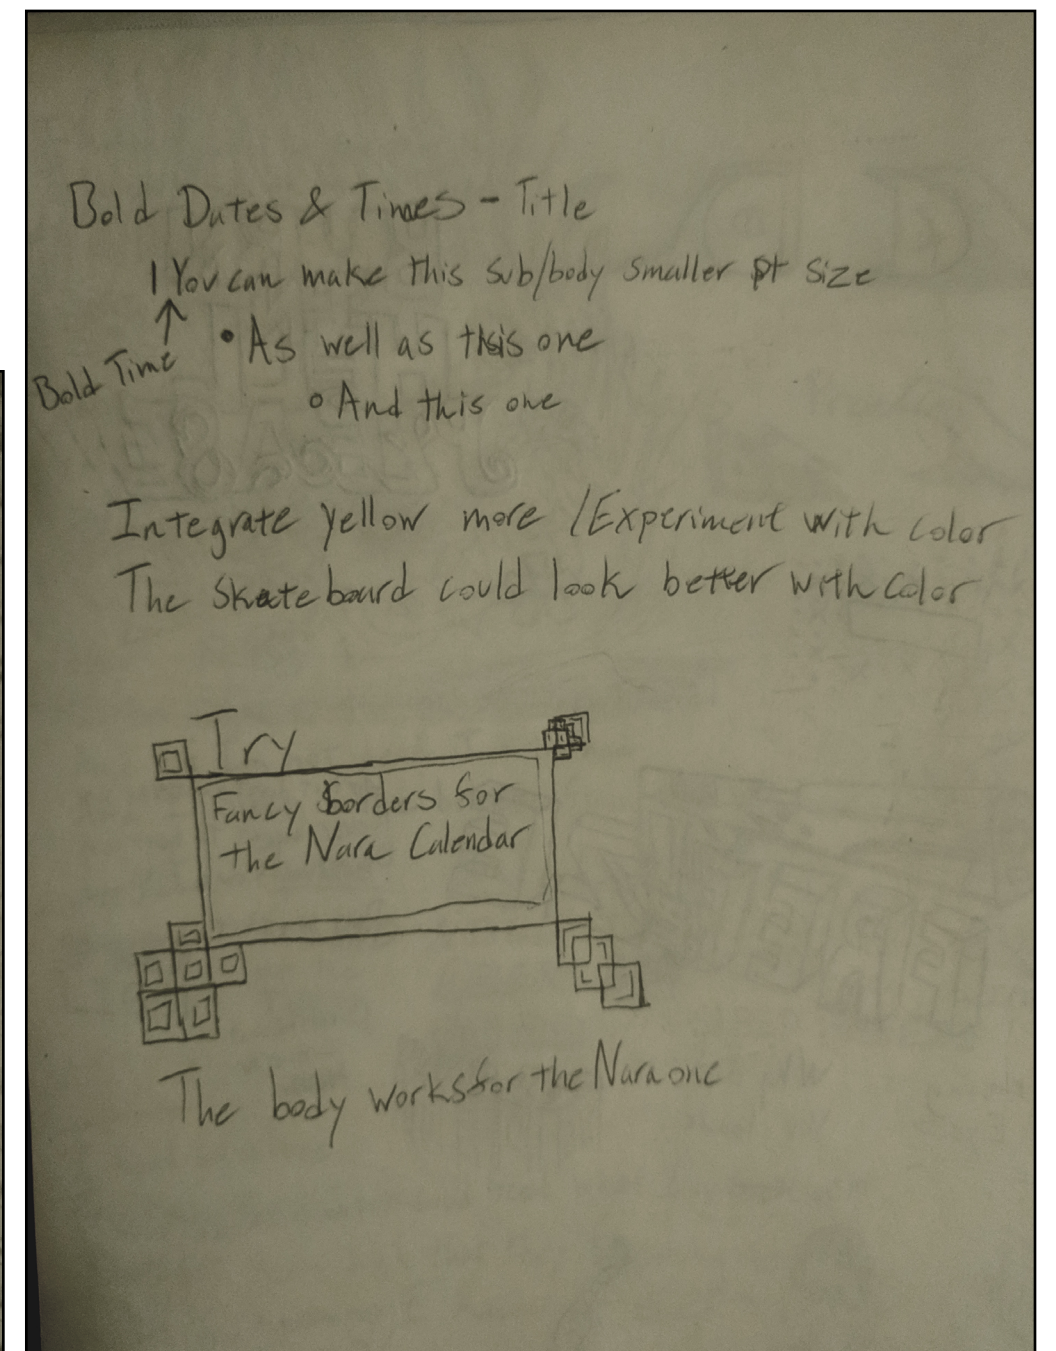 Bold Dates & Times - Title
1 You can make this sub/body smaller pt size
Bold Time
• As well as this one
○ And this one
Integrate yellow more / Experiment with color
The Skateboard could look better with color
Try
Fancy borders for
the Nara Calendar
The body works for the Nara one